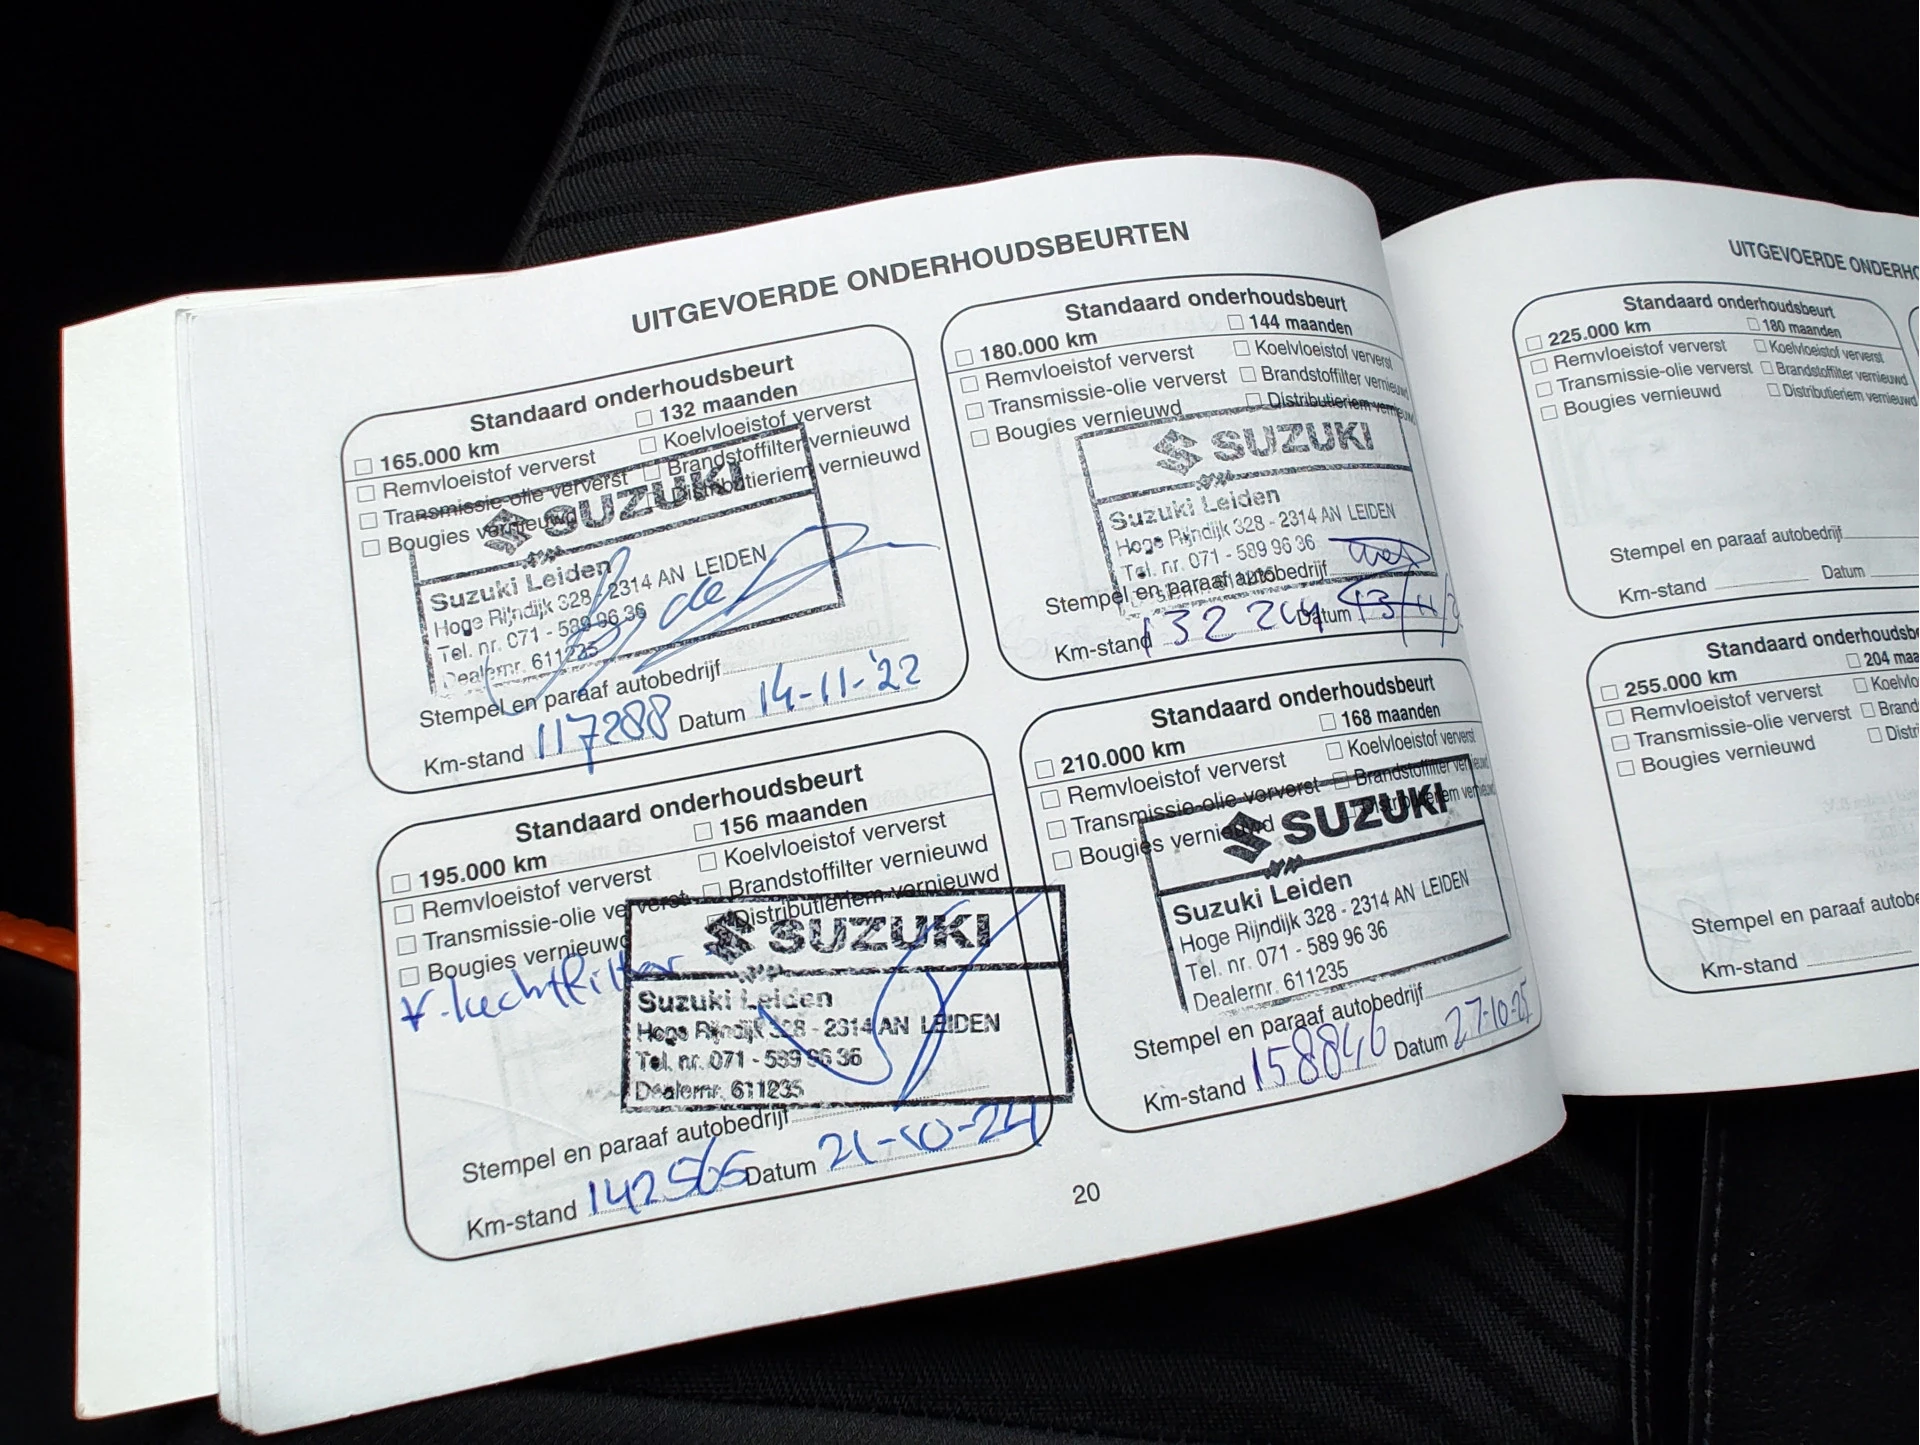 UITGEVOERDE ONDERHOUDSBEURTEN
Standaard onderhoudsbeurt
165.000 km 132 maanden
Remvloeistof ververst Koelvloeistof ververst
Transmissie-olie ververst Brandstoffilter vernieuwd
Bougies vernieuwd Distributieriem vernieuwd
SUZUKI
Suzuki Leiden
Hoge Rijndijk 328 - 2314 AN LEIDEN
Tel. nr. 071 - 589 96 36
Dealernr. 611235
Stempel en paraaf autobedrijf
Km-stand 117288 Datum 14-11-'22
Standaard onderhoudsbeurt
180.000 km 144 maanden
Remvloeistof ververst Koelvloeistof ververst
Transmissie-olie ververst Brandstoffilter vernieuwd
Bougies vernieuwd Distributieriem vernieuwd
SUZUKI
Suzuki Leiden
Hoge Rijndijk 328 - 2314 AN LEIDEN
Tel. nr. 071 - 589 96 36
Stempel en paraaf autobedrijf
Km-stand Datum
Standaard onderhoudsbeurt
195.000 km 156 maanden
Remvloeistof ververst Koelvloeistof ververst
Transmissie-olie ververst Brandstoffilter vernieuwd
Bougies vernieuwd Distributieriem vernieuwd
SUZUKI
Suzuki Leiden
Hoge Rijndijk 328 - 2314 AN LEIDEN
Tel. nr. 071 - 589 96 36
Dealernr. 611235
Stempel en paraaf autobedrijf
Km-stand 142565 Datum 21-10-24
Standaard onderhoudsbeurt
210.000 km 168 maanden
Remvloeistof ververst Koelvloeistof ververst
Transmissie-olie ververst Brandstoffilter vernieuwd
Bougies vernieuwd Distributieriem vernieuwd
SUZUKI
Suzuki Leiden
Hoge Rijndijk 328 - 2314 AN LEIDEN
Tel. nr. 071 - 589 96 36
Dealernr. 611235
Stempel en paraaf autobedrijf
Km-stand 158846 Datum 27-10-25
20
UITGEVOERDE ONDERHO
Standaard onderhoudsbeurt
225.000 km 180 maanden
Remvloeistof ververst Koelvloeistof ververst
Transmissie-olie ververst Brandstoffilter vernieuwd
Bougies vernieuwd Distributieriem vernieuwd
Stempel en paraaf autobedrijf
Km-stand Datum
Standaard onderhoudsbe
255.000 km 204 maa
Remvloeistof ververst Koelvlo
Transmissie-olie ververst Brand
Bougies vernieuwd Distri
Stempel en paraaf autobe
Km-stand